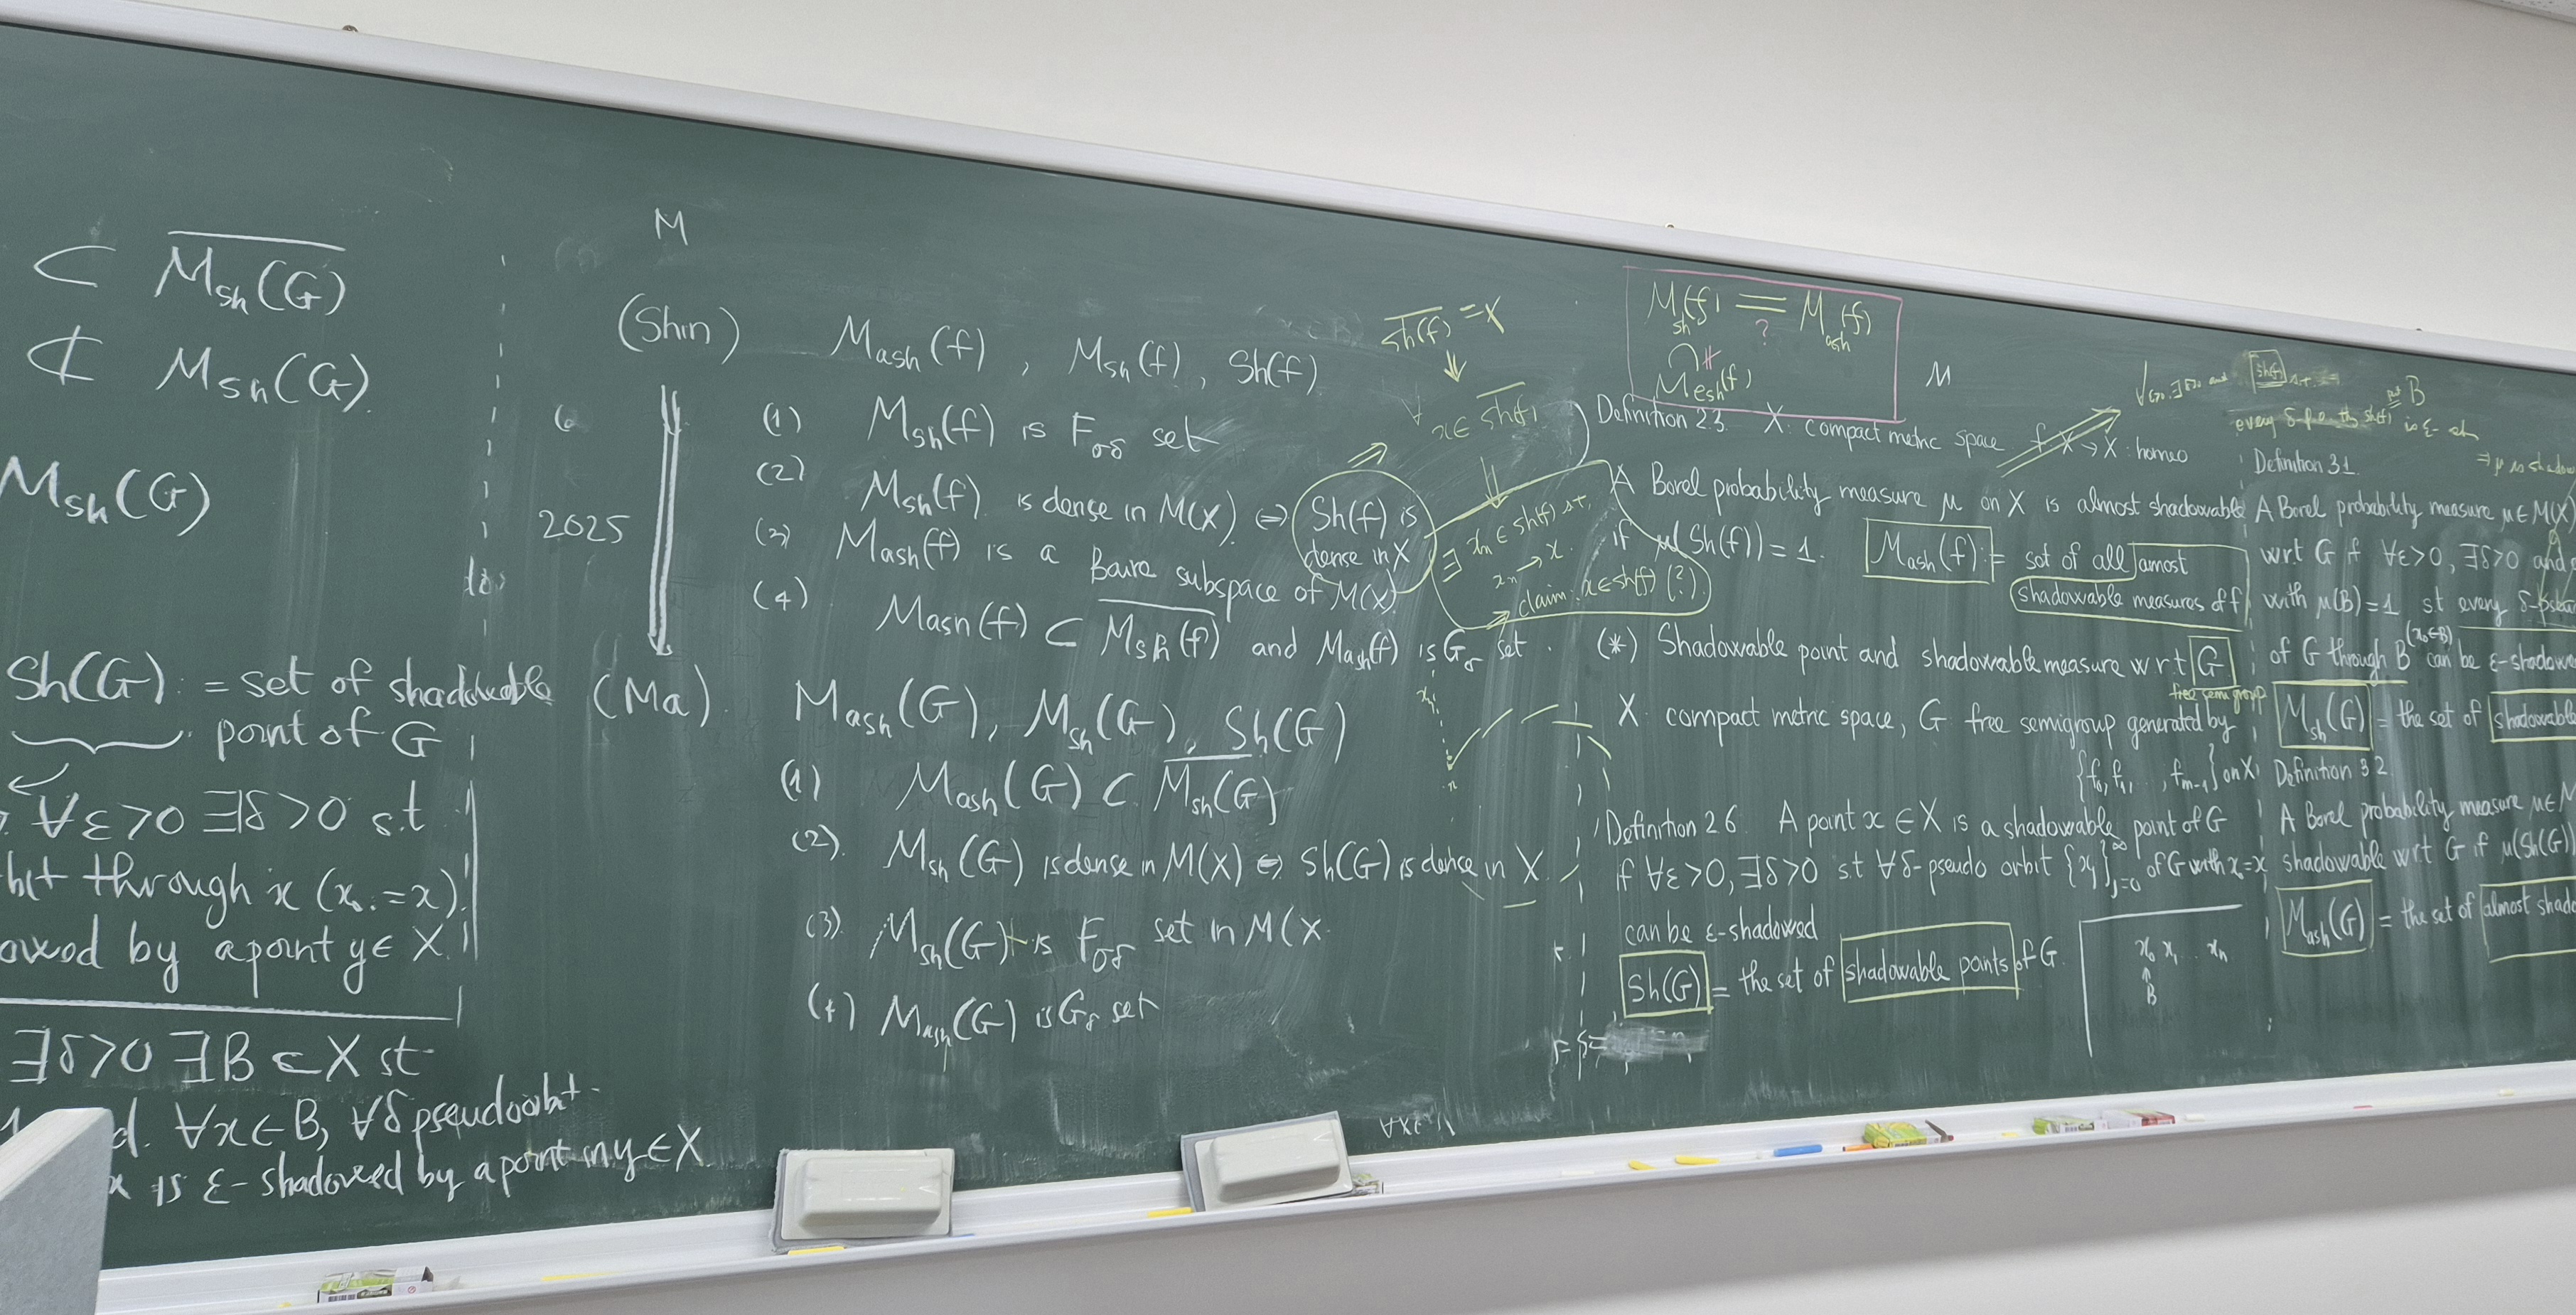 ⊂ \overline{M_{sh}(G)}
⊄ M_{sh}(G).
M_{sh}(G)
Sh(G) := set of shadowable
point of G
∀ε>0 ∃δ>0 s.t
through x (x_0 := x)
by a point y ∈ X.
∃δ>0 ∃B ⊂ X st
∀x∈B, ∀δ pseudoorbit
x is ε-shadowed by a point in y ∈ X
M
2025
(Shin) M_{ash}(f), M_{sh}(f), Sh(f)
(1) M_{sh}(f) is F_{σδ} set
(2) M_{sh}(f) is dense in M(X) ⇔ Sh(f) is dense in X
(3) M_{ash}(f) is a Baire subspace of M(X)
(4) M_{ash}(f) ⊂ \overline{M_{sh}(f)} and M_{ash}(f) is G_δ set.
(Ma). M_{ash}(G), M_{sh}(G), Sh(G)
(1) M_{ash}(G) ⊂ \overline{M_{sh}(G)}
(2). M_{sh}(G) is dense in M(X) ⇔ Sh(G) is dense in X.
(3). M_{sh}(G) is F_{σδ} set in M(X
(4) M_{ash}(G) is G_δ set
\overline{Sh(f)} = X
⇓
∀ x ∈ \overline{Sh(f)}
⇓
∃ x_n ∈ Sh(f) s.t.
x_n → x.
claim: x ∈ Sh(f) (?).
M_{sh}(f) = M_{ash}(f)
?
M_{esh}(f)
M
Definition 2.3. X: compact metric space f: X → X: homeo
A Borel probability measure μ on X is almost shadowable
if μ(Sh(f)) = 1. M_{ash}(f) := set of all amost
shadowable measures of f
(*) Shadowable point and shadowable measure w r t G
free semigroup
X compact metric space, G free semigroup generated by
{f_0, f_1, ..., f_{m-1}} on X
Definition 2.6. A point x ∈ X is a shadowable point of G
if ∀ε>0, ∃δ>0 s.t ∀δ-pseudo orbit {x_j}_{j=0}^∞ of G with x_0=x
can be ε-shadowed
Sh(G) = the set of shadowable points of G.
x_0 x_1 .. x_n
B
B
Definition 3.1.
A Borel probability measure μ∈M(X)
wrt G if ∀ε>0, ∃δ>0 and
with μ(B)=1 st every
of G through B (x_0∈B) can be
M_{sh}(G) = the set of shadowable
Definition 3.2
A Borel probability measure
shadowable wrt G if μ(Sh(G)
M_{ash}(G) = the set of almost